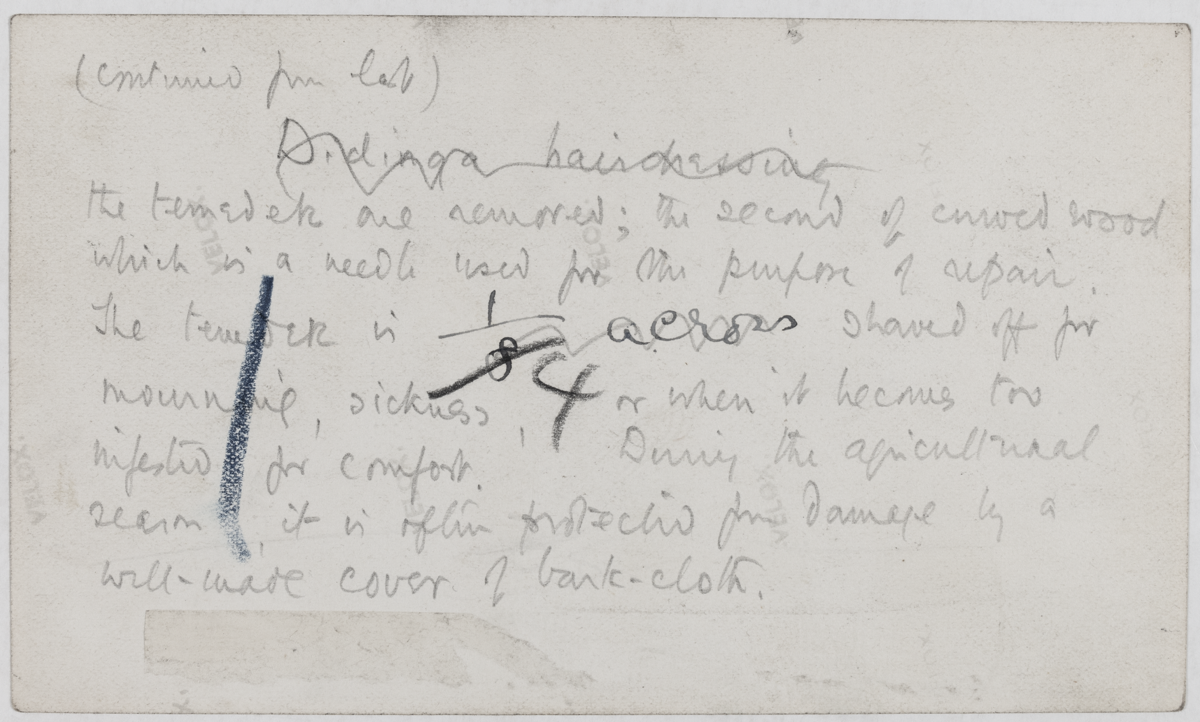 (continued from last)
Didinga hairdressing
the temedek are removed; the second of curved wood
which is a needle used for the purpose of repair.
The temedek is 1/8 4 across shaved off for
mourning, sickness, or when it becomes too
infested for comfort. During the agricultural
season, it is often protected from damage by a
well-made cover of bark-cloth.
VELOX
VELOX
VELOX
VELOX